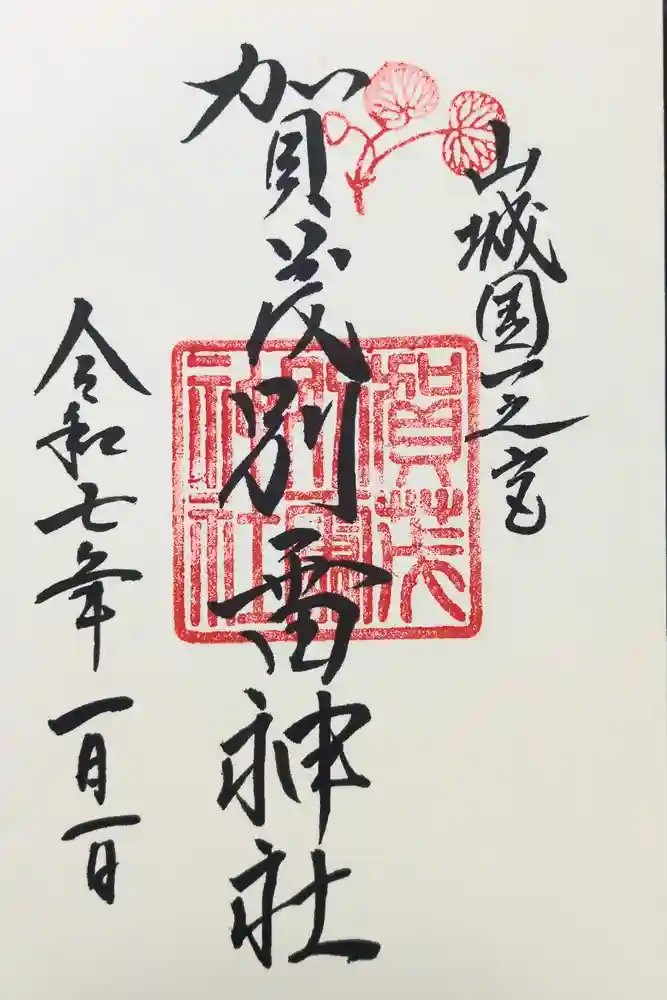 山城国一之宮
賀茂別雷神社
令和七年一月一日
賀茂
別雷
神社